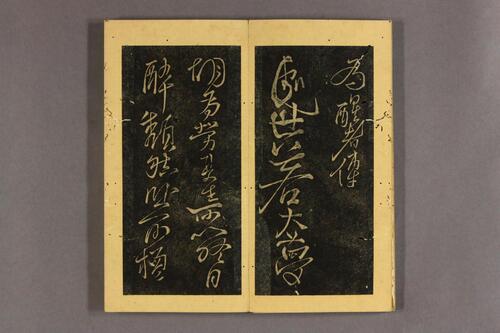 為醒者傳
處世若大夢
胡為勞其生所以終日
醉頹然臥前楹